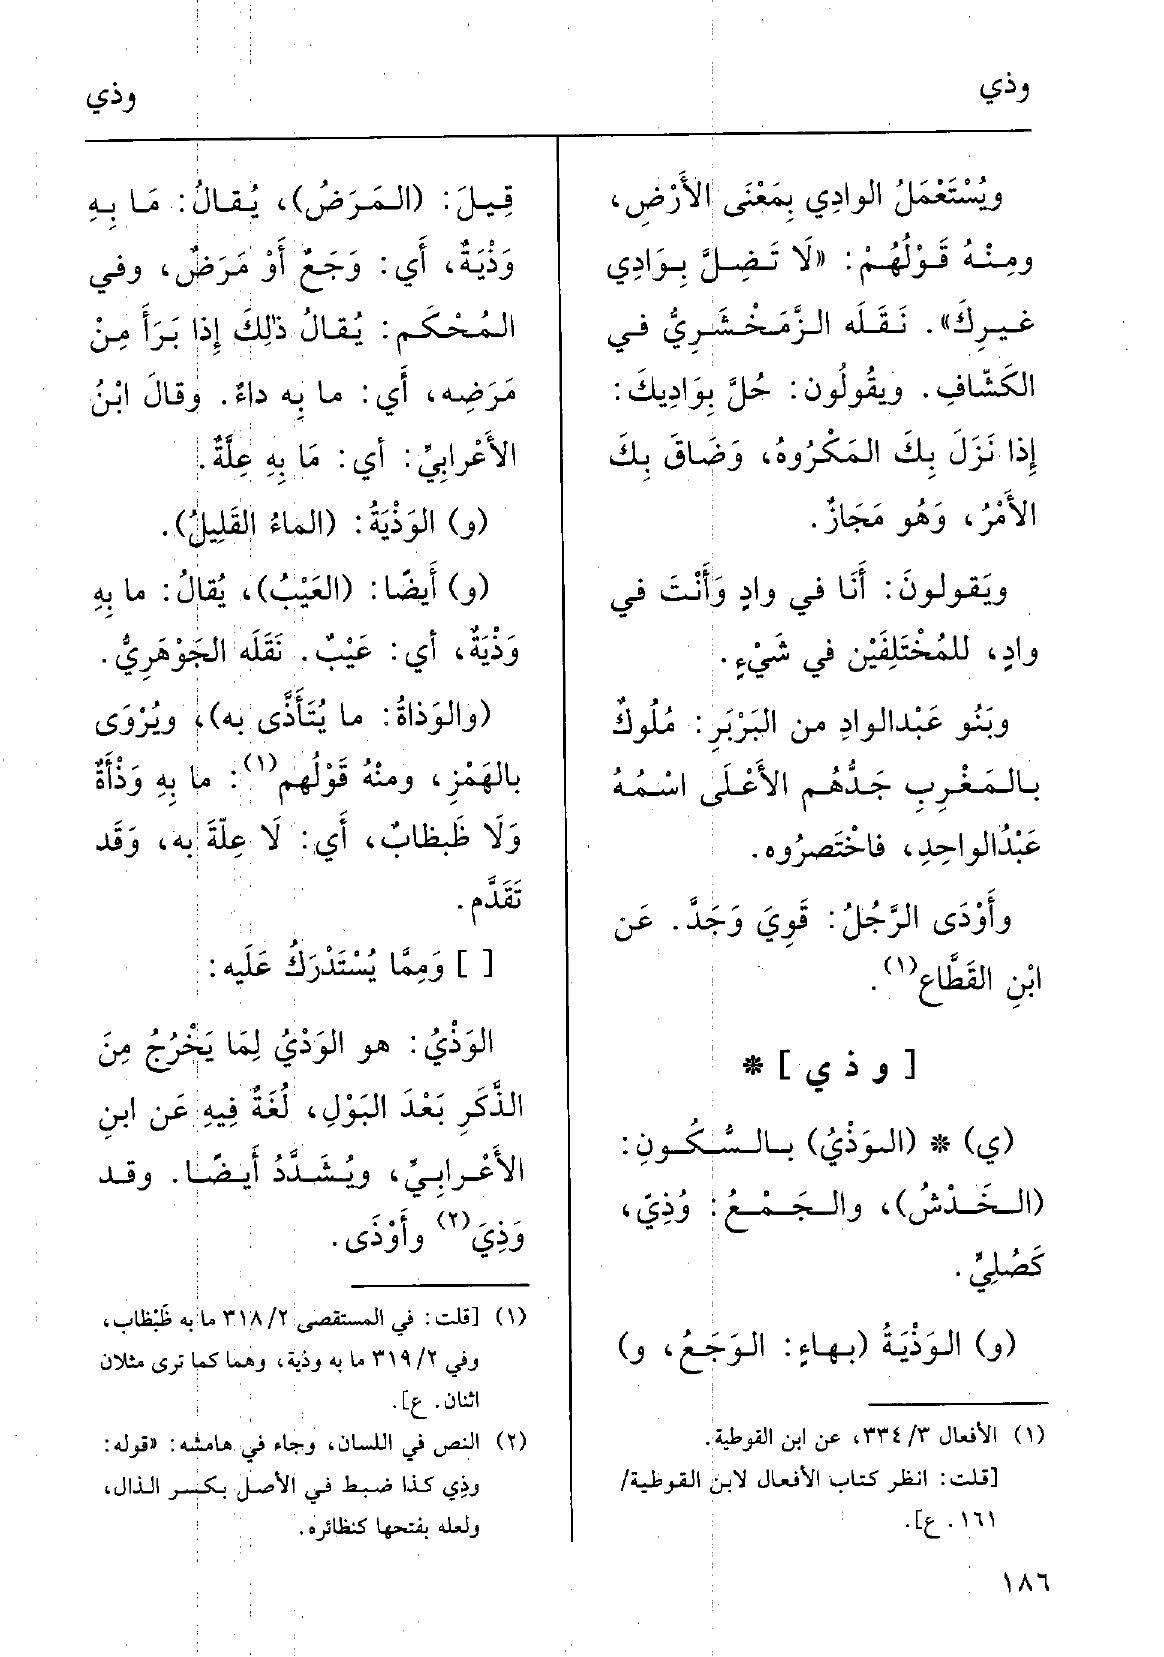 وذي
وذي
ويُسْتَعْمَلُ الوادِي بِمَعْنَى الأَرْضِ،
ومِنْهُ قَوْلُهُمْ: «لَا تَضِلَّ بِوَادِي
غيرِكَ». نَقَلَه الزَّمَخْشَرِيُّ في
الكَشّافِ. ويقُولُون: حُلَّ بِوَادِيكَ:
إِذا نَزَلَ بِكَ المَكْرُوهُ، وَضَاقَ بِكَ
الأَمْرُ، وَهُو مَجَازٌ.
ويَقولونَ: أَنَا في وادٍ وَأَنْتَ في
وادٍ، للمُخْتَلِفَيْن في شَيْءٍ.
وبَنُو عَبْدالوادِ من البَرْبَرِ: مُلُوكٌ
بالمَغْرِبِ جَدُّهُم الأَعْلَى اسْمُهُ
عَبْدُالواحِدِ، فاخْتَصرُوه.
وأَوْدَى الرَّجُلُ: قَوِيَ وَجَدَّ. عَن
ابْنِ القَطَّاع(١).
[ و ذ ي ] *
(ي) * (الوَذْيُ) بالسُّكُونِ:
(الخَدْشُ)، والجَمْعُ: وُذِيّ،
كَصُلِيٍّ.
(و) الوَذْيَةُ (بهاءٍ: الوَجَعُ، و)
(١) الأفعال ٣٣٤/٣، عن ابن القوطية.
[قلت: انظر كتاب الأفعال لابن القوطية/
١٦١. ع].
قِيلَ: (المَرَضُ)، يُقالُ: مَا بِهِ
وَذْيَةٌ، أَي: وَجَعٌ أَوْ مَرَضٌ، وفي
المُحْكَم: يُقالُ ذٰلِكَ إِذا بَرَأَ مِنْ
مَرَضِه، أَي: ما بِه داءٌ. وقالَ ابْنُ
الأَعْرابِيِّ: أي: مَا بِهِ عِلَّةٌ.
(و) الوَذْيَةُ: (الماءُ القَلِيلُ).
(و) أَيضًا: (العَيْبُ)، يُقالُ: ما بِهِ
وَذْيَةٌ، أي: عَيْبٌ. نَقَلَه الجَوْهَرِيُّ.
(والوَذاةُ: ما يُتَأَذَّى به)، ويُرْوَى
بالهَمْزِ، ومنْهُ قَوْلُهم(١): ما بِهِ وَذْأَةٌ
وَلَا ظَبظابٌ، أَي: لَا عِلّةَ به، وَقَد
تَقَدَّم.
[ ] وَمِمَّا يُسْتَدْرَكُ عَلَيه:
الوَذْيُ: هو الوَدْيُ لِمَا يَخْرُجُ مِنَ
الذَّكَرِ بَعْدَ البَوْلِ، لُغَةٌ فِيهِ عَن ابنِ
الأَعْرابِيِّ، ويُشَدَّدُ أَيضًا. وقد
وَذِيَ(٢) وأَوْذَى.
(١) [قلت: في المستقصى ٣١٨/٢ ما به ظَبْظاب،
وفي ٣١٩/٢ ما به وذية، وهما كما ترى مثلان
اثنان. ع].
(٢) النص في اللسان، وجاء في هامشه: «قوله:
وذِي كذا ضبط في الأصل بكسر الذال،
ولعله بفتحها كنظائره.
١٨٦